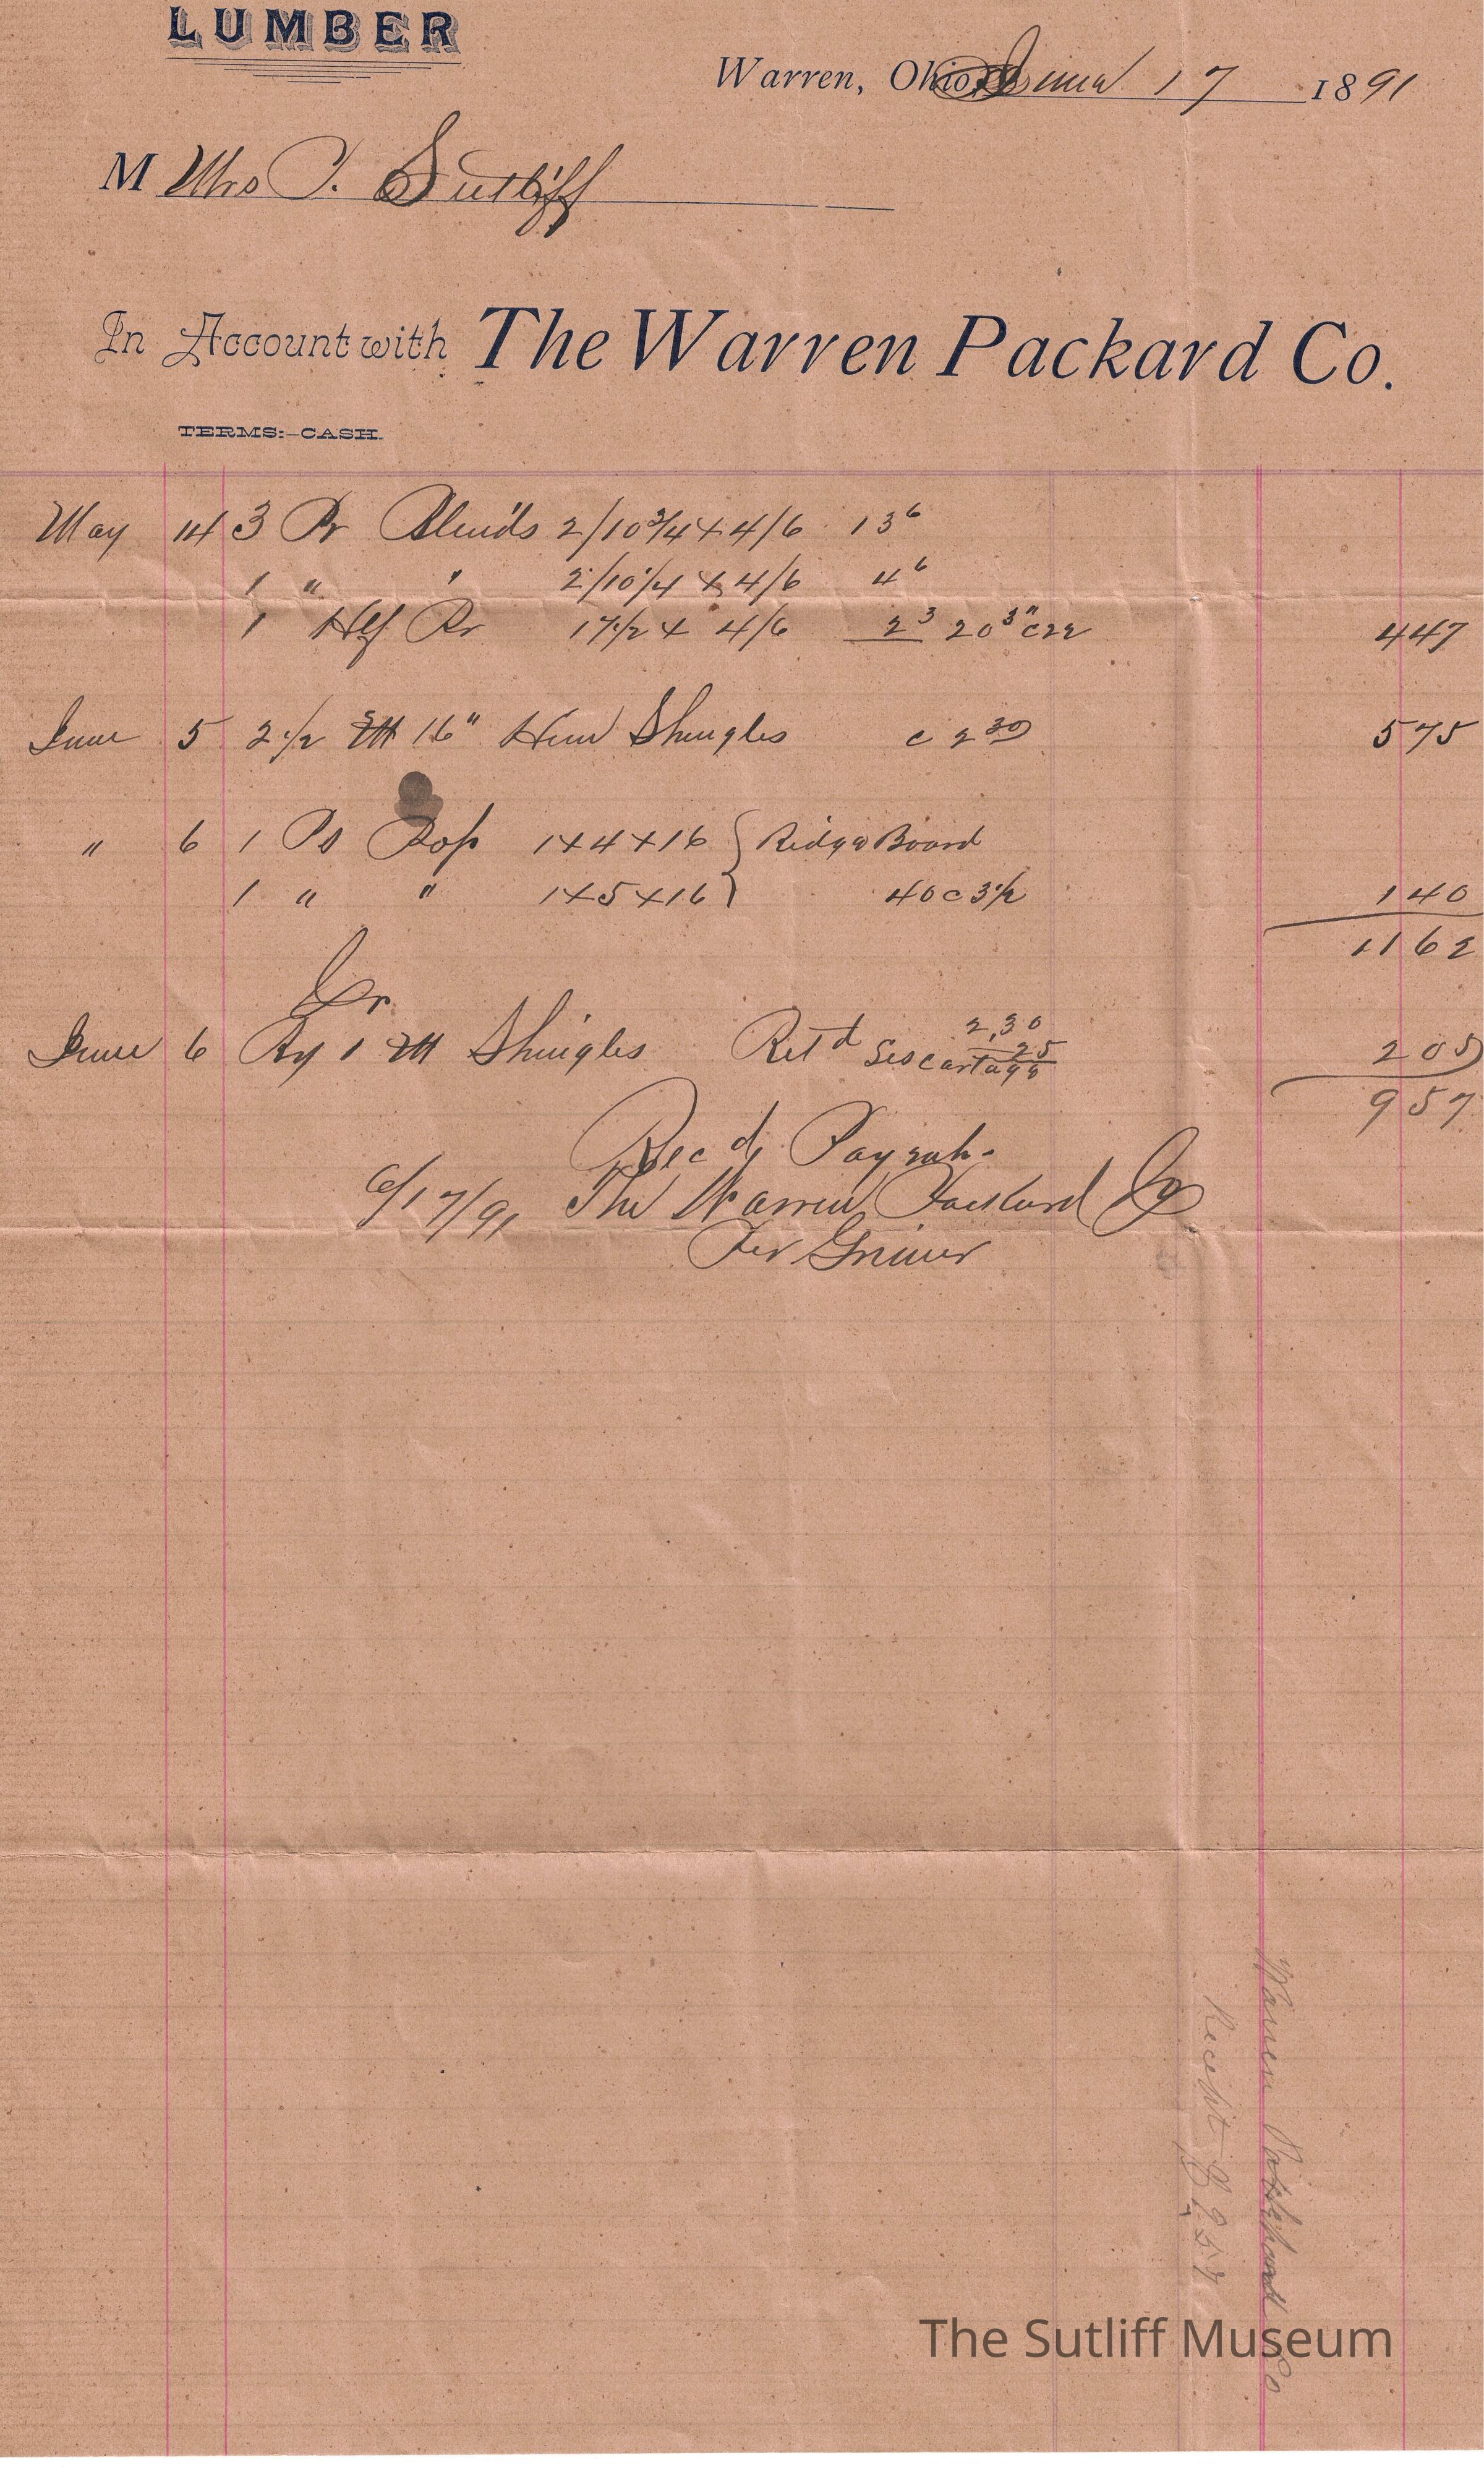 LUMBER
Warren, Ohio, June 17 1891
M Mrs J. Sutliff
In Account with The Warren Packard Co.
TERMS:-CASH.
May 14 3 Pr Blinds 2/10 3/4 x 4/6 13 6
1 " " 2/10 1/4 x 4/6 4 6
1 Hlf Pr 17 1/2 x 4/6 2 3 20 3" c 22 4 47
June 5 2 1/2 M 16" Hem Shingles c 2 30 5 75
" 6 1 Ps Pop 1 x 4 x 16 } Ridge Board
1 " " 1 x 5 x 16 } 40 c 3 1/2 1 40
11 62
Cr
June 6 By 1 M Shingles Retd 2,30
Les cartage 25 2 05
9 57
Rec'd Paymt.
6/17/91 The Warren Packard Co
Per
Warren Packard Co
Receipt $ 9.57
The Sutliff Museum